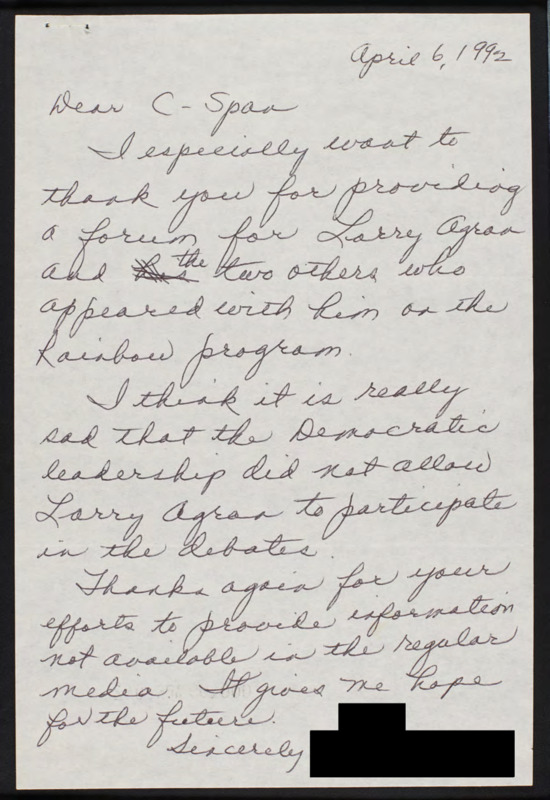 April 6, 1992
Dear C-Span
I especially want to
thank you for providing
a forum for Larry Agran
and the two others who
appeared with him on the
Rainbow program.
I think it is really
sad that the Democratic
leadership did not allow
Larry Agran to participate
in the debates.
Thanks again for your
efforts to provide information
not available in the regular
media. It gives me hope
for the future.
Sincerely